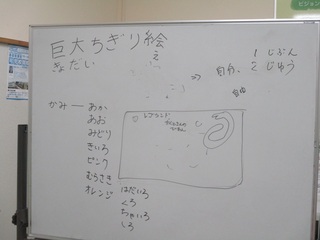 巨大ちぎり絵
きょだい
え
⇒ 自分
1 じぶん
2 じゆう
自由
かみ — あか
あお
みどり
きいろ
ピンク
むらさき
オレンジ
はだいろ
くろ
ちゃいろ
しろ